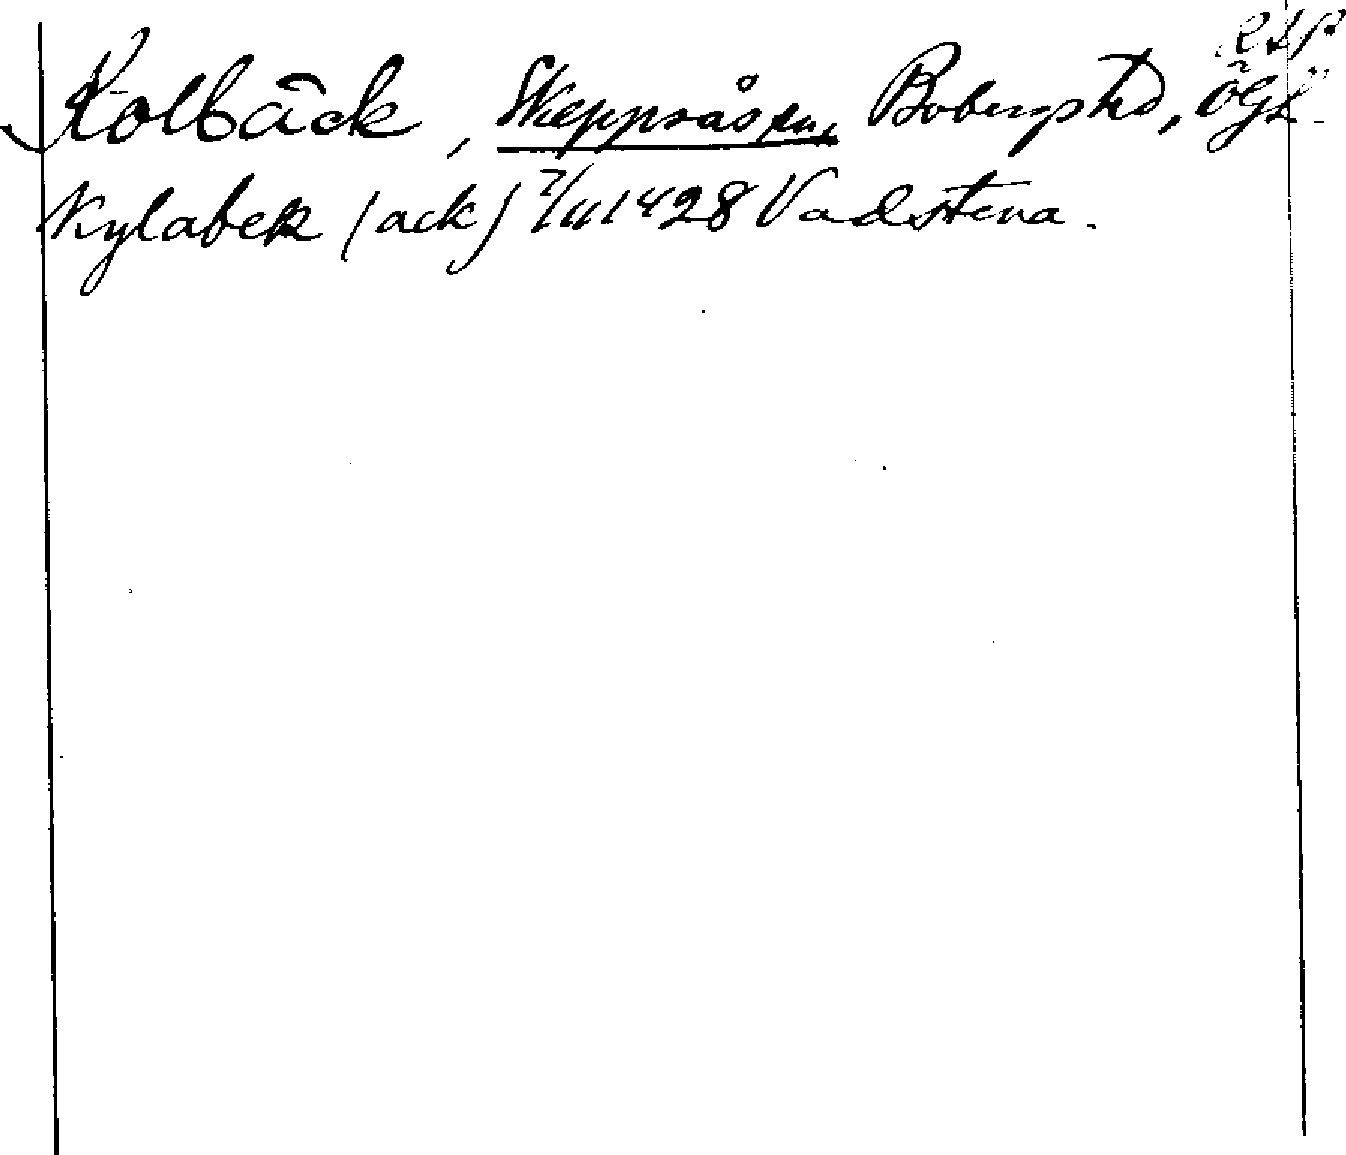 RAP
Kolbäck, Skeppsås sn, Bobergs hd, Ögl.
Kylabek (ack) 7/11 1428 Vadstena.